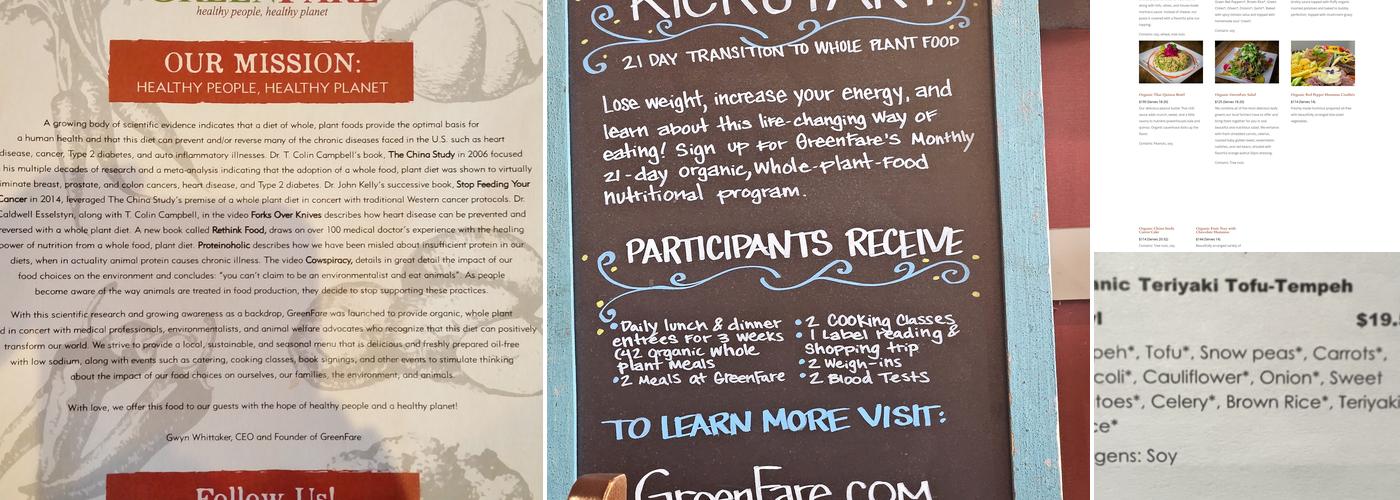 healthy people, healthy planet
OUR MISSION:
HEALTHY PEOPLE, HEALTHY PLANET
A growing body of scientific evidence indicates that a diet of whole, plant foods provide the optimal basis for
a human health and that this diet can prevent and/or reverse many of the chronic diseases faced in the U.S. such as heart
disease, cancer, Type 2 diabetes, and auto inflammatory illnesses. Dr. T. Colin Campbell's book, The China Study in 2006 focused
his multiple decades of research and a meta-analysis indicating that the adoption of a whole food, plant diet was shown to virtually
iminate breast, prostate, and colon cancers, heart disease, and Type 2 diabetes. Dr. John Kelly's successive book, Stop Feeding Your
Cancer in 2014, leveraged The China Study's premise of a whole plant diet in concert with traditional Western cancer protocols. Dr.
Caldwell Esselstyn, along with T. Colin Campbell, in the video Forks Over Knives describes how heart disease can be prevented and
reversed with a whole plant diet. A new book called Rethink Food, draws on over 100 medical doctor's experience with the healing
power of nutrition from a whole food, plant diet. Proteinoholic describes how we have been misled about insufficient protein in our
diets, when in actuality animal protein causes chronic illness. The video Cowspiracy, details in great detail the impact of our
food choices on the environment and concludes: "you can't claim to be an environmentalist and eat animals". As people
become aware of the way animals are treated in food production, they decide to stop supporting these practices.
With this scientific research and growing awareness as a backdrop, GreenFare was launched to provide organic, whole plant
d in concert with medical professionals, environmentalists, and animal welfare advocates who recognize that this diet can positively
transform our world. We strive to provide a local, sustainable, and seasonal menu that is delicious and freshly prepared oil-free
with low sodium, along with events such as catering, cooking classes, book signings, and other events to stimulate thinking
about the impact of our food choices on ourselves, our families, the environment, and animals.
With love, we offer this food to our guests with the hope of healthy people and a healthy planet!
Gwyn Whittaker, CEO and Founder of GreenFare
Follow Us!
KICKSTART
21 DAY TRANSITION TO WHOLE PLANT FOOD
Lose weight, increase your energy, and
learn about this life-changing way of
eating! Sign up for Greenfare's Monthly
21-day organic, Whole-plant-food
nutritional program.
PARTICIPANTS RECEIVE
•Daily lunch & dinner
entrées for 3 weeks
(42 organic whole
plant meals
•2 Meals at GreenFare
•2 Cooking Classes
•1 Label reading &
Shopping trip
•2 Weigh-ins
•2 Blood Tests
TO LEARN MORE VISIT:
GreenFare.com
Organic Thai Quinoa Bowl
Organic GreenFare Salad
Organic Red Pepper Hummus Crudités
Contains: Peanuts, soy
Contains: Tree nuts
anic Teriyaki Tofu-Tempeh
$19.
peh*, Tofu*, Snow peas*, Carrots*,
coli*, Cauliflower*, Onion*, Sweet
toes*, Celery*, Brown Rice*, Teriyaki
ce*
gens: Soy